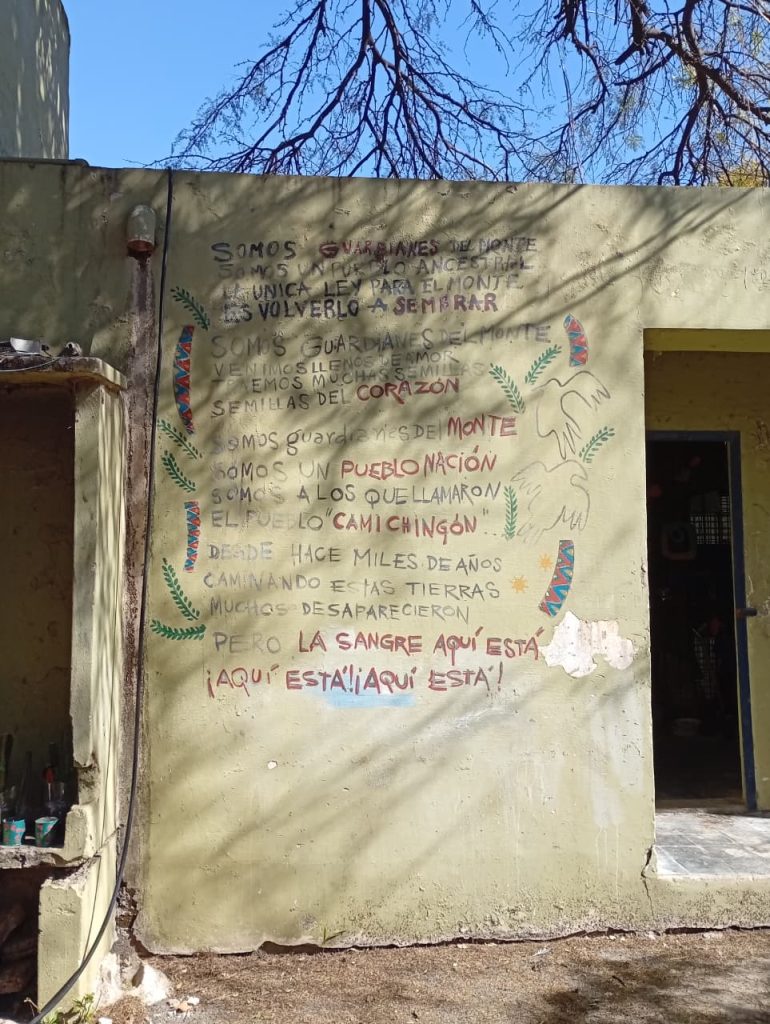 SOMOS GUARDIANES DEL MONTE
SOMOS UN PUEBLO ANCESTRAL
LA UNICA LEY PARA EL MONTE
ES VOLVERLO A SEMBRAR
SOMOS GUARDIANES DEL MONTE
VENIMOS LLENOS DE AMOR
TENEMOS MUCHAS SEMILLAS
SEMILLAS DEL CORAZÓN
SOMOS guardianes DEL MONTE
SOMOS UN PUEBLO NACIÓN
SOMOS A LOS QUE LLAMARON
EL PUEBLO "CAMICHINGÓN"..
DESDE HACE MILES DE AÑOS
CAMINANDO ESTAS TIERRAS
MUCHOS DESAPARECIERON
PERO LA SANGRE AQUÍ ESTÁ
¡AQUÍ ESTÁ!¡AQUÍ ESTÁ!